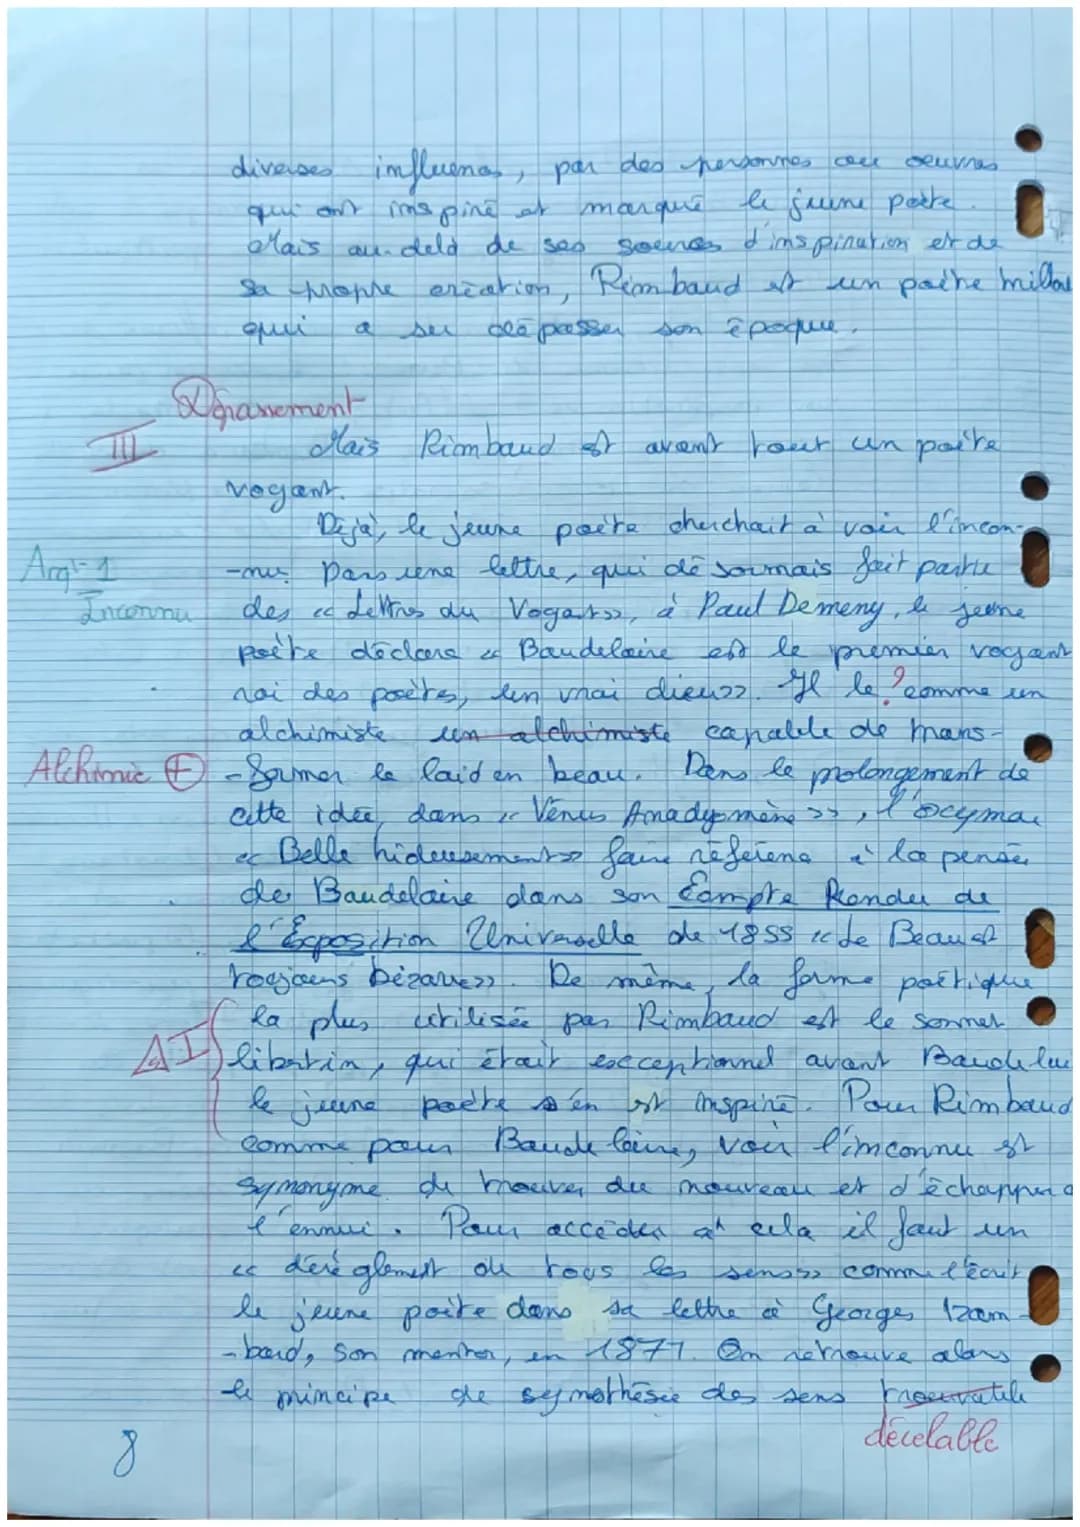 diverses influences, par des personnes ou oeuvres
qui ont inspiré et marqué le jeune poète.
Mais au-delà de ses sources d'inspiration et de
sa propre création, Rimbaud est un poète
qui a su dépasser son époque.
Dépassement
III
Mais Rimbaud est avant tout un poète
voyant.
Déjà, le jeune poète cherchait à voir l'incon-
Arg^t 1 -nu. Dans une lettre, qui désormais fait partie
Inconnu des « Lettres du Voyant », à Paul Demeny, le jeune
poète déclare « Baudelaire est le premier voyant
roi des poètes, un vrai dieu ». Il le ? comme un
alchimiste un alchimiste capable de trans-
Alchimie + -former le laid en beau. Dans le prolongement de
cette idée, dans « Vénus Anadyomène », l'ocymo
« Belle hideusement » faire référence à la pensée
de Baudelaire dans son Compte Rendu de
l'Exposition Universelle de 1855 « Le Beau est
toujours bizarre ». De même, la forme poétique
la plus utilisée par Rimbaud est le sonnet
AI libertin, qui était exceptionnel avant Baudelai
le jeune poète s'en est inspiré. Pour Rimbaud
comme pour Baudelaire, voir l'inconnu est
synonyme de trouver du nouveau et d'échapper a
l'ennui. Pour accéder à cela il faut un
« dérèglement de tous les sens » comme l'écrit
le jeune poète dans sa lettre à Georges Izam-
-bard, son mentor, en 1871. On retrouve alors
le principe de synothésie des sens trouvable
décelable
8